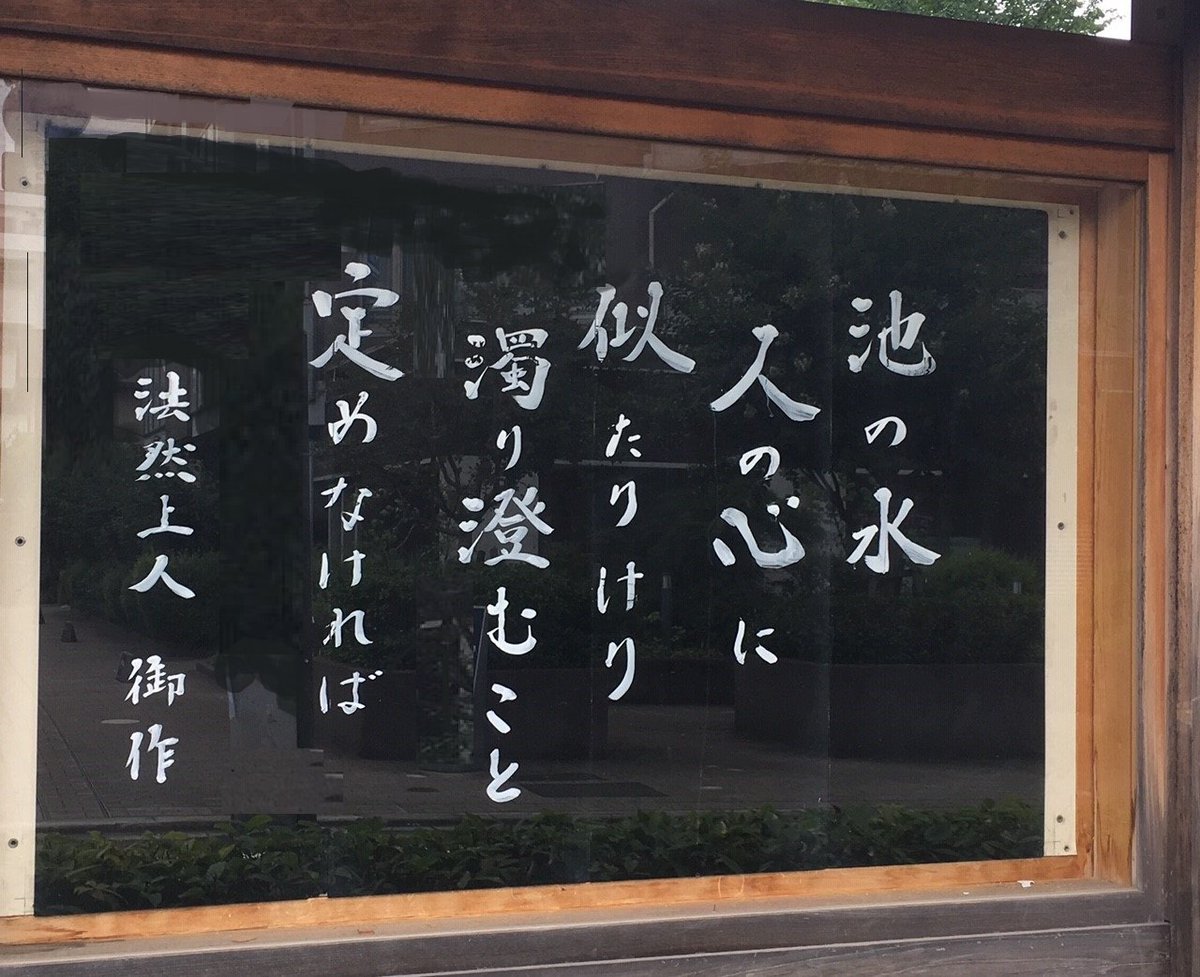 池の水
人の心に
似たりけり
濁り澄むこと
定めなければ
法然上人 御作